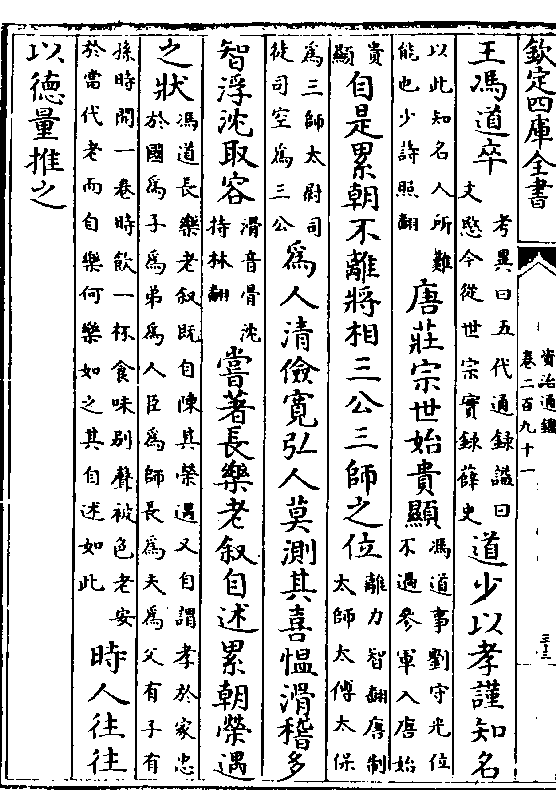 欽定四庫全書
資治通鑑
卷二百九十一
三十三
王馮道卒考異曰五代通錄謚曰文愍今從世宗實錄薛史道少以孝謹知名
以此知名人所難能也少詩照翻唐莊宗世始貴顯馮道事劉守光位不過參軍入唐始
貴顯自是累朝不離將相三公三師之位離力智翻唐制太師太傅太保
為三師太尉司徒司空為三公為人清儉寬弘人莫測其喜愠滑稽多
智浮沈取容滑音骨沈持林翻嘗著長樂老叙自述累朝榮遇
之狀馮道長樂老叙既自陳其榮遇又自謂孝於家忠於國為子為弟為人臣為師長為夫為父有子有
孫時開一卷時飲一杯食味别聲被色老安於當代老而自樂何樂如之其自述如此時人往往
以德量推之